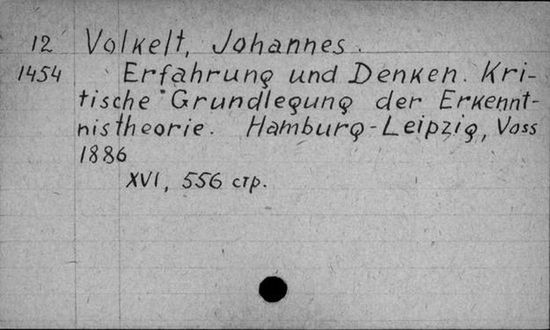 12 Volkelt, Johannes.
1454 Erfahrung und Denken. Kri-
tische Grundlegung der Erkennt-
nistheorie. Hamburg-Leipzig, Voss
1886
XVI, 556 стр.